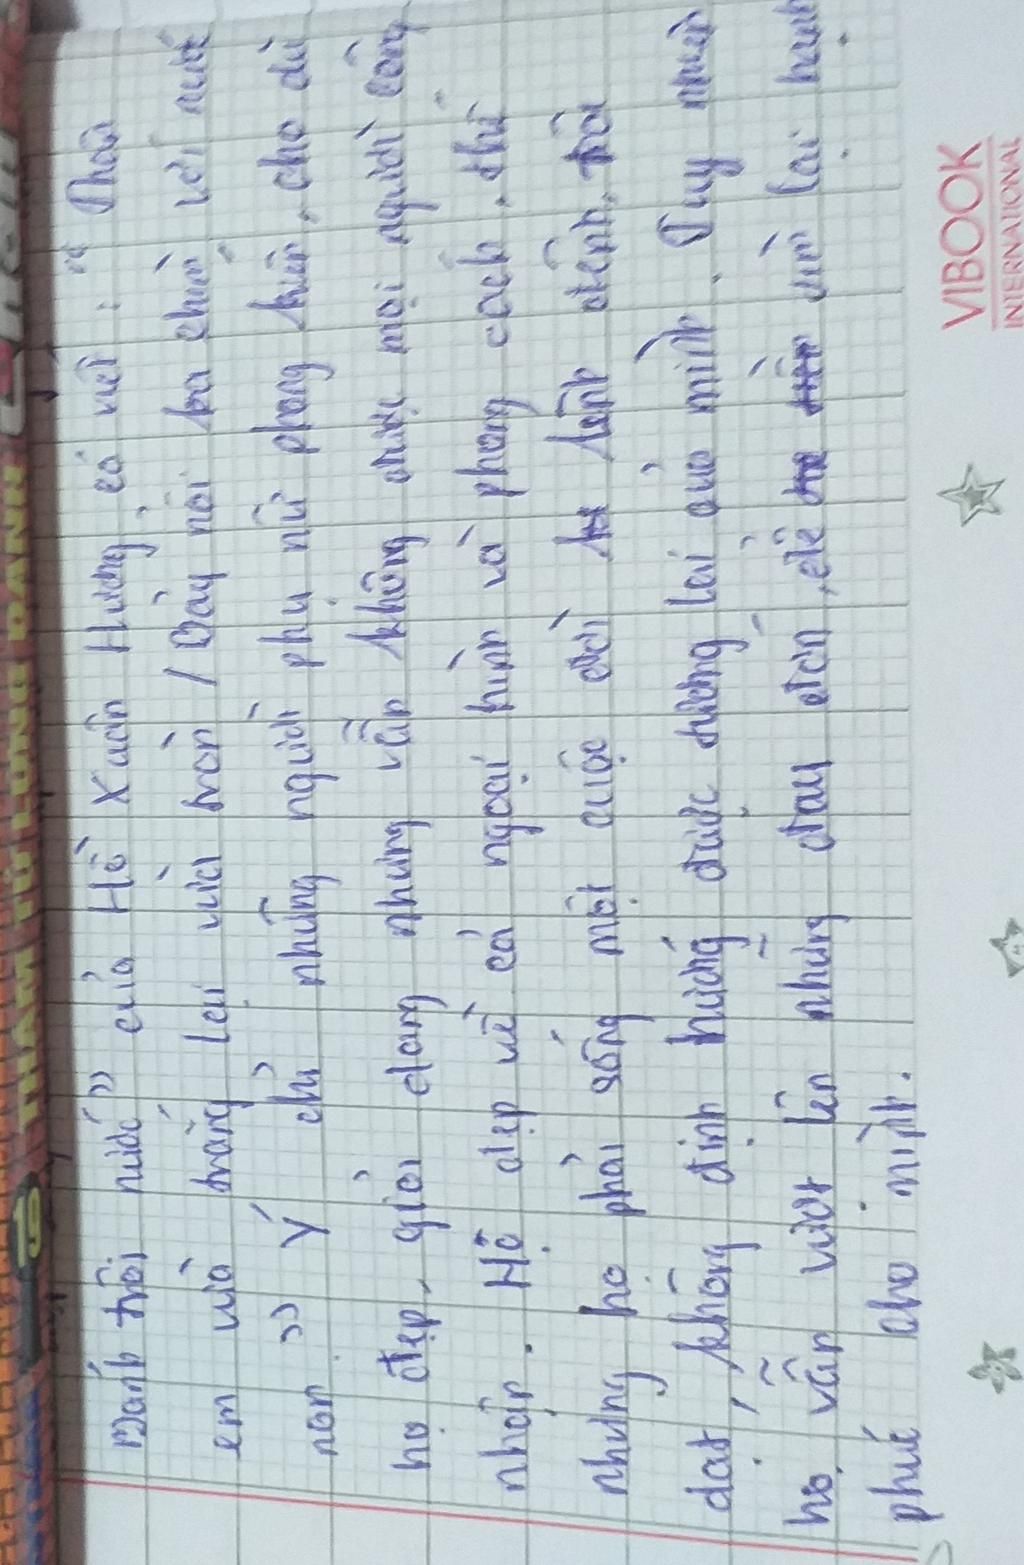 THÁM TỬ LỪNG DANH
"Bánh trôi nước" của Hồ Xuân Hương, có viết: "Thân
em vừa trắng lại vừa tròn / Bảy nổi ba chìm với nước
non" Ý chỉ những người phụ nữ phong kiến, cho dù
họ đẹp, giỏi dang nhưng vẫn không được mọi người công
nhận. Họ đẹp về cả ngoại hình và phong cách, thế
nhưng họ phải sống một cuộc đời lênh đênh, trôi
dạt, không định hướng được tương lai của mình. Tuy nhiên
họ vẫn vượt lên những đau đớn, để tìm lại hạnh
phúc cho mình.
VIBOOK
INTERNATIONAL